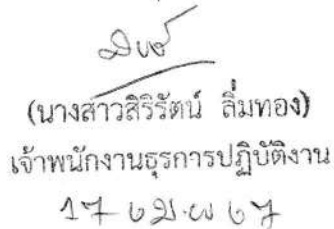 (นางสาวสิริรัตน์ ลิ่มทอง)
เจ้าพนักงานธุรการปฏิบัติงาน
17 เม.ย 67